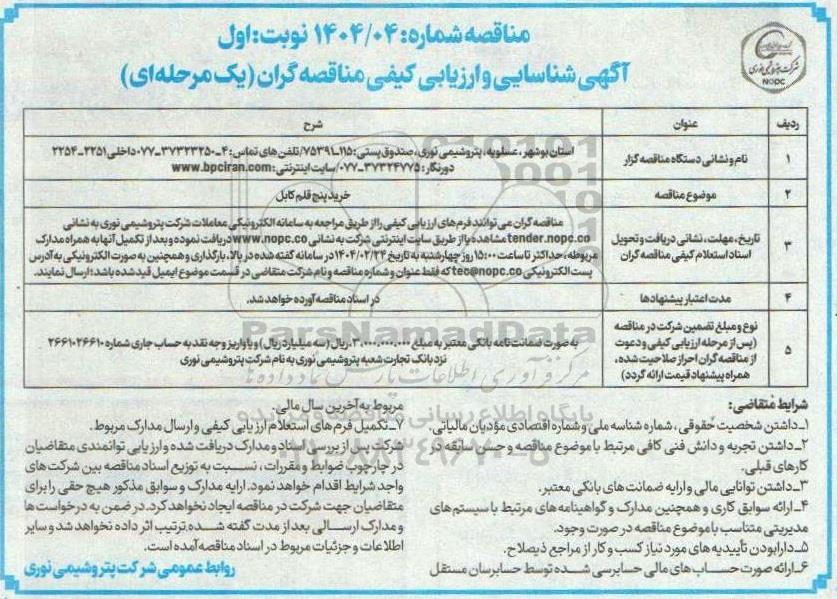 مناقصه شماره: ۱۴۰۴/۰۴ نوبت: اول
آگهی شناسایی و ارزیابی کیفی مناقصه گران (یک مرحله‌ای)
شرکت پتروشیمی نوری
NOPC
ردیف عنوان شرح
۱ نام و نشانی دستگاه مناقصه گزار
استان بوشهر، عسلویه، پتروشیمی نوری، صندوق پستی: ۱۱۵-۷۵۳۹۱/ تلفن های تماس: ۴-۳۷۳۲۳۲۵۰-۰۷۷ داخلی ۲۲۵۱-۲۲۵۴
دورنگار: ۳۷۳۲۴۷۷۵-۰۷۷/ سایت اینترنتی: www.bpciran.com
۲ موضوع مناقصه خرید پنج قلم کابل
۳ تاریخ، مهلت، نشانی دریافت و تحویل
اسناد استعلام کیفی مناقصه گران
مناقصه گران می توانند فرم های ارزیابی کیفی را از طریق مراجعه به سامانه الکترونیکی معاملات شرکت پتروشیمی نوری به نشانی
tender.nopc.co مشاهده یا از طریق سایت اینترنتی شرکت به نشانی www.nopc.co دریافت نموده و بعد از تکمیل آنها به همراه مدارک
مربوطه، حداکثر تا ساعت ۱۵:۰۰ روز چهارشنبه به تاریخ ۱۴۰۴/۰۲/۲۴ در سامانه گفته شده در بالا، بارگذاری و همچنین به صورت الکترونیکی به آدرس
پست الکترونیکی tec@nopc.co که فقط عنوان و شماره مناقصه و نام شرکت متقاضی در قسمت موضوع ایمیل قید شده باشد؛ ارسال نمایند.
۴ مدت اعتبار پیشنهادها در اسناد مناقصه آورده خواهد شد.
۵ نوع و مبلغ تضمین شرکت در مناقصه
(پس از مرحله ارزیابی کیفی و دعوت
از مناقصه گران احراز صلاحیت شده،
همراه پیشنهاد قیمت ارائه گردد)
به صورت ضمانت نامه بانکی معتبر به مبلغ ۳.۰۰۰.۰۰۰.۰۰۰ ریال (سه میلیارد ریال) و یا واریز وجه نقد به حساب جاری شماره ۲۶۶۱۰۲۶۶۱۰
نزد بانک تجارت شعبه پتروشیمی نوری به نام شرکت پتروشیمی نوری
ParsNamadData
مرکز فرآوری اطلاعات پارس نماد داده ها
پایگاه اطلاع رسانی مناقصه و مزایده
۰۲۱-۸۸۳۴۹۶۷۰-۵
شرایط متقاضی:
۱- داشتن شخصیت حقوقی، شماره شناسه ملی و شماره اقتصادی مؤدیان مالیاتی.
۲- داشتن تجربه و دانش فنی کافی مرتبط با موضوع مناقصه و حسن سابقه در
کارهای قبلی.
۳- داشتن توانایی مالی و ارایه ضمانت های بانکی معتبر.
۴- ارائه سوابق کاری و همچنین مدارک و گواهینامه های مرتبط با سیستم های
مدیریتی متناسب با موضوع مناقصه در صورت وجود.
۵- دارا بودن تأییدیه های مورد نیاز کسب و کار از مراجع ذیصلاح.
۶- ارائه صورت حساب های مالی حسابرسی شده توسط حسابرسان مستقل
مربوط به آخرین سال مالی.
۷- تکمیل فرم های استعلام ارزیابی کیفی و ارسال مدارک مربوط.
شرکت پس از بررسی اسناد و مدارک دریافت شده و ارزیابی توانمندی متقاضیان
در چارچوب ضوابط و مقررات، نسبت به توزیع اسناد مناقصه بین شرکت های
واجد شرایط اقدام خواهد نمود. ارایه مدارک و سوابق مذکور هیچ حقی را برای
متقاضیان جهت شرکت در مناقصه ایجاد نخواهد کرد. در ضمن به درخواست ها
و مدارک ارسالی بعد از مدت گفته شده، ترتیب اثر داده نخواهد شد و سایر
اطلاعات و جزئیات مربوط در اسناد مناقصه آمده است.
روابط عمومی شرکت پتروشیمی نوری